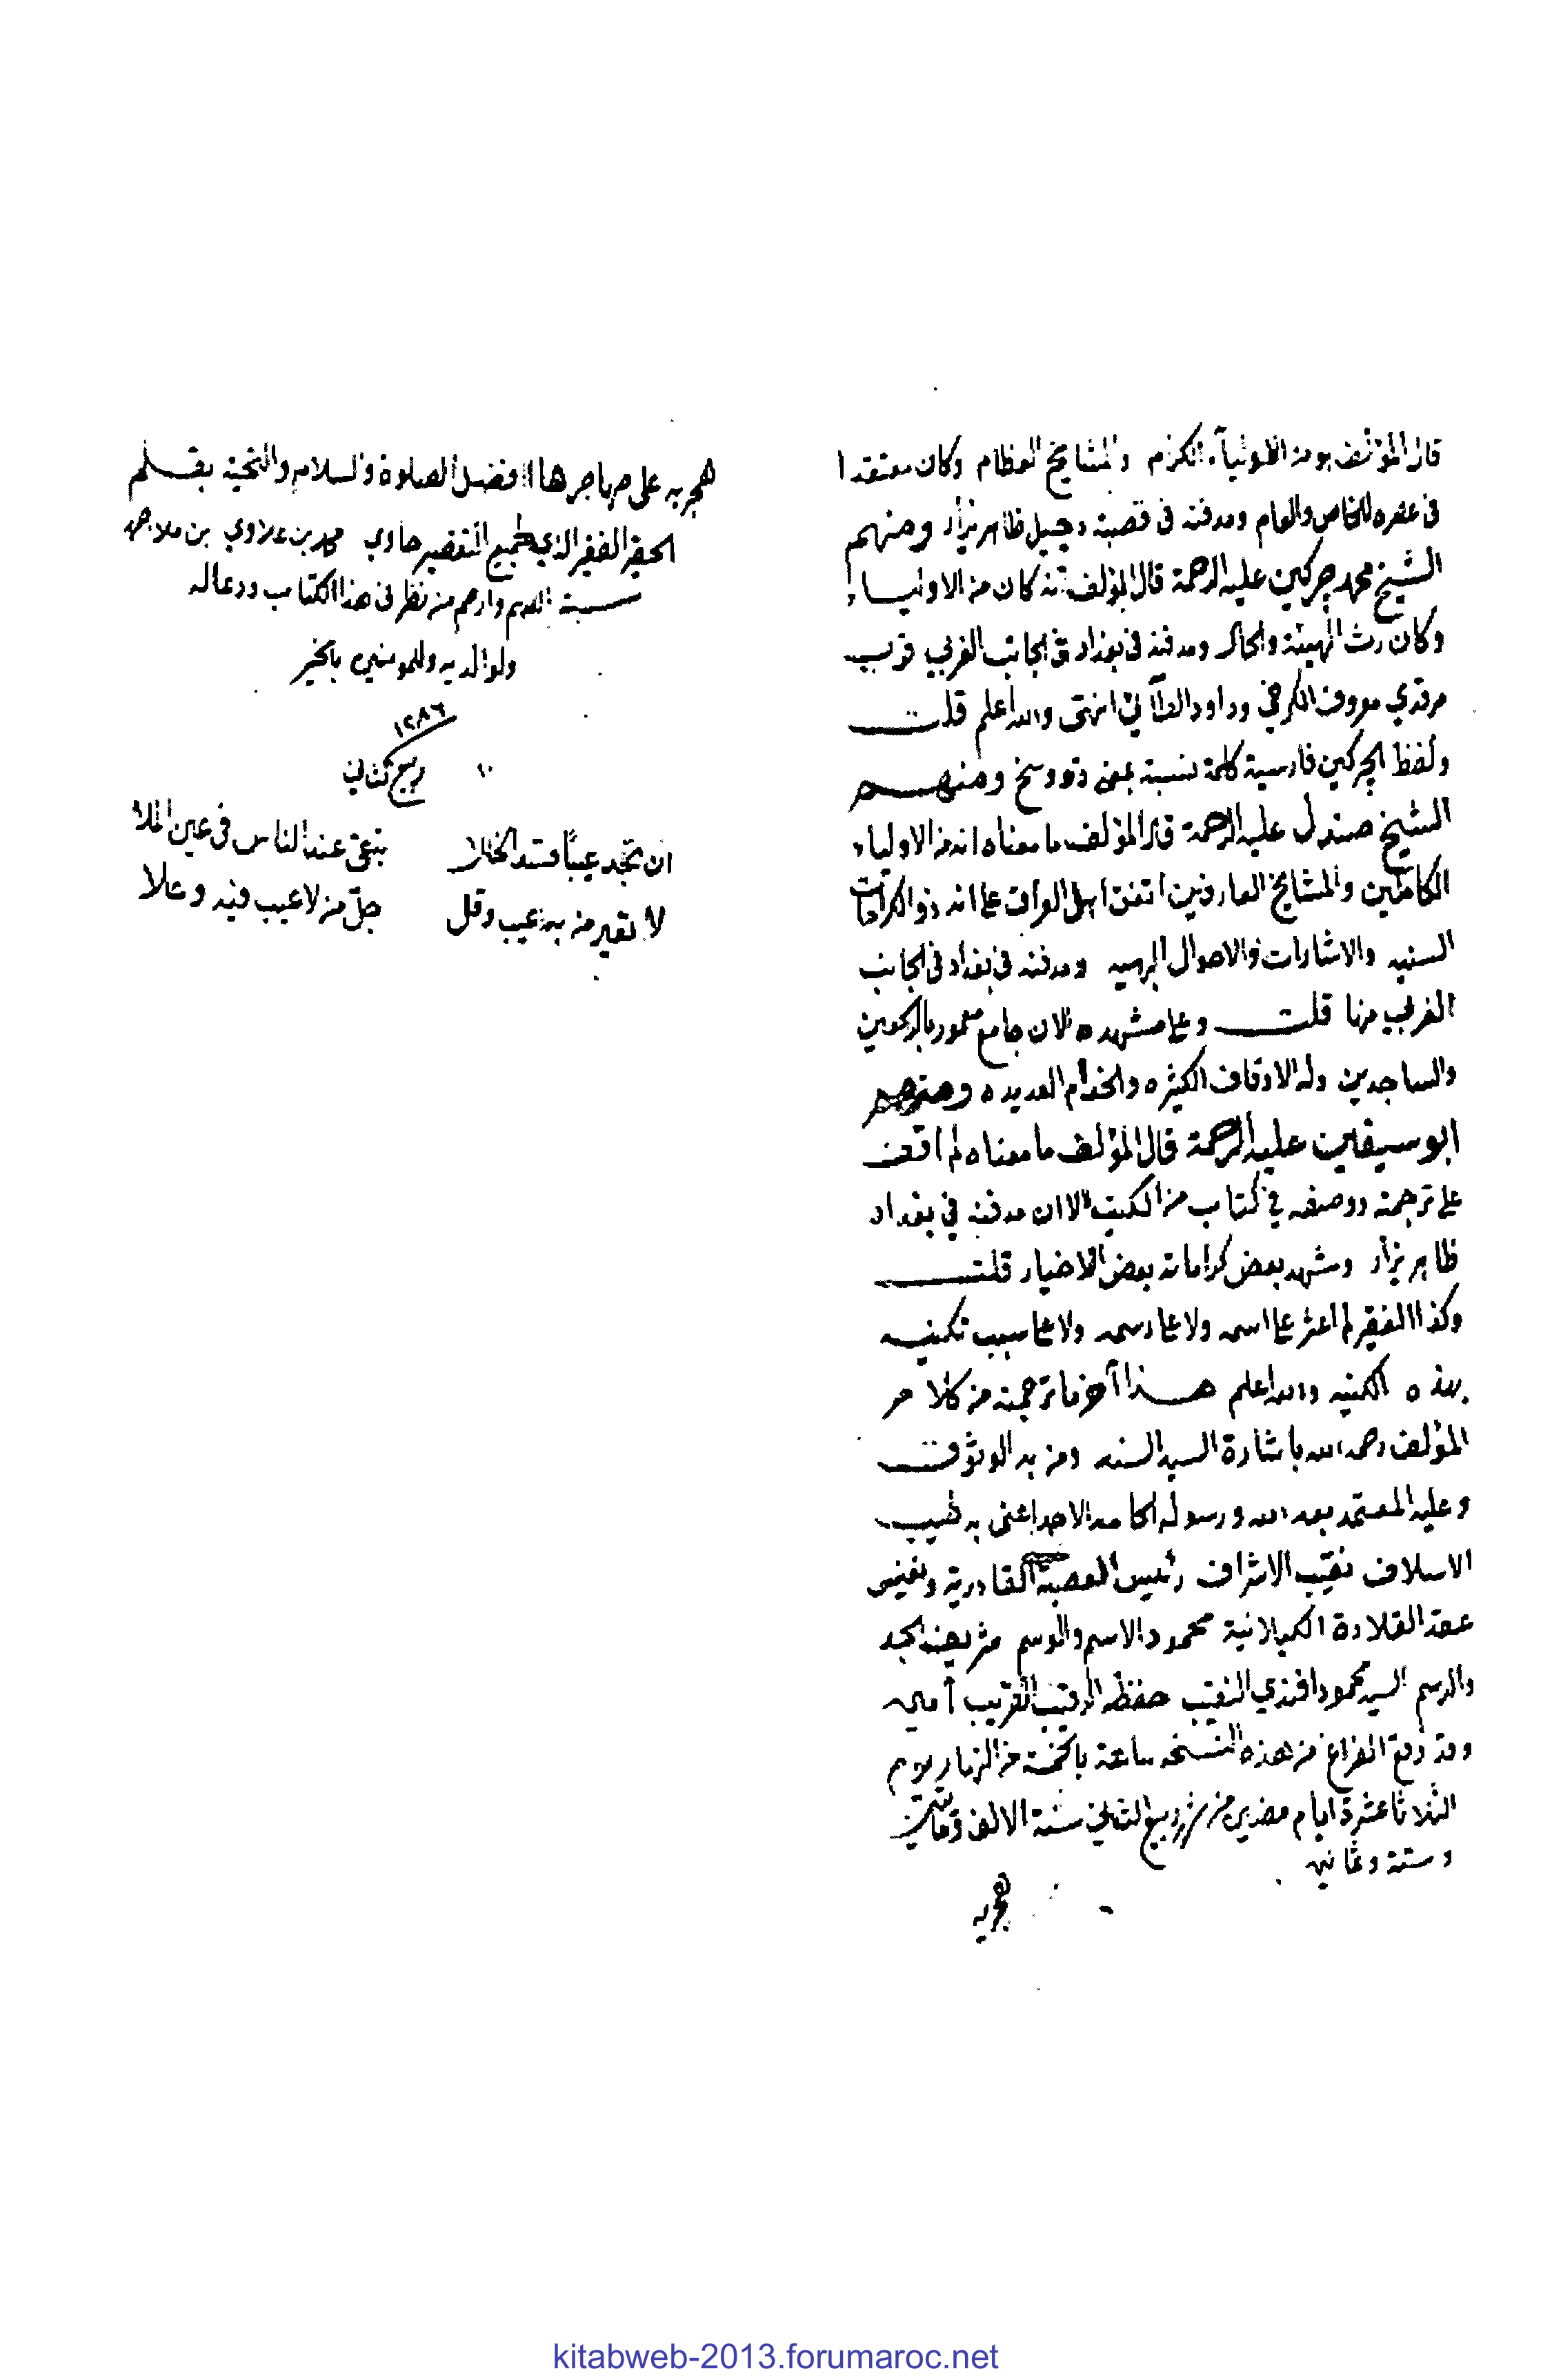 قال المؤلف هو من الاولياء الكرام والمشايخ العظام وكان معتقدا
فى عصره للخاص والعام ومدفنه فى قصبة دجيل ظاهر يزار ومنهم
الشيخ محمد چركين عليه الرحمة قال المؤلف انه كان من الاولياء
وكان رث الهيئة والحال ومدفنه فى بغداد فى الجانب الغربي قرب
مرقدي معروف الكرخي وداود الطائي انتهى والله اعلم قلت
ولفظ الچركين فارسية كلمة نسبة بمعنى ذو وسخ ومنهم
الشيخ صندل عليه الرحمة قال المؤلف ما معناه انه من الاولياء
الكاملين والمشايخ العارفين اتفق اهل العراق على انه ذو الكرامات
السنيه والاشارات والاحوال البهيه ومدفنه فى بغداد فى الجانب
الغربي منها قلت وعلى مشهده الان جامع معمور بالراكعين
والساجدين وله الاوقاف الكثيره والخدام العديده ومنهم
ابو سيفين عليه الرحمة قال المؤلف ما معناه لم اقف
على ترجمته ووصفه في كتاب من الكتب الا ان مدفنه في بغداد
ظاهر يزار وشهد بعض كراماته بعض الاخيار قلت
وكذا الفقير لم اعثر على اسمه ولا على رسمه ولا على سبب تكنيه
بهذه الكنيه والله اعلم هذا آخر ما ترجمته من كلام
المؤلف رحمه الله باشارة السيد السند ومن به الوثوق
وعليه المعتمد بعد الله ورسوله الحامد الاحد اعنى به طيب
الاسلاف نقيب الاشراف رئيس العصبة القادرية ونفيس
عقد القلادة الكيلانية محمود الاسم والوسم شريف الجد
والرسم السيد محمود افندي النقيب حفظه الرقيب القريب آمين
وقد وقع الفراغ من هذه النسخه ساعة بالخمسة من النهار يوم
الثلاثا عشرة ايام مضين من شهر ربيع الثاني سنة الالف ومأتين
وستة وثمانين
هجريه
هجريه على مهاجرها افضل الصلوة والسلام والتحيه بقلم
الحقير الفقير الذي لجميع التقصير حاوي محمد بن علاوي بن ملا
وارحم من نظر فى هذا الكتاب ودعا له
ولوالديه وللمومنين بالخير
١٢٨٦
١٠ ربيع ثاني
ان تجد عيبًا فسد الخللا تبقى عند الناس فى عين الملا
لا تعير من به عيب وقل جلّ من لا عيب فيه وعلا
kitabweb-2013.forumaroc.net